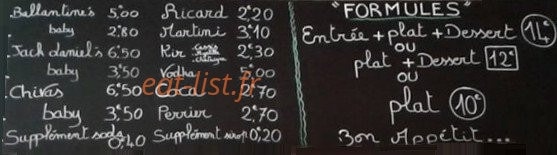 Ballantine's 5,00
baby 2,80
Jack daniel's 6,50
baby 3,50
Chivas 6,50
baby 3,50
Supplément soda 0,40
Ricard 2,20
Martini 3,10
Kir 2,30
Vodka 5,00
Coca 2,70
Perrier 2,70
Supplément sirop 0,20
"FORMULES"
Entrée + plat + Dessert 14€
ou
plat + Dessert 12€
ou
plat 10€
Bon Appétit...
eat-list.fr